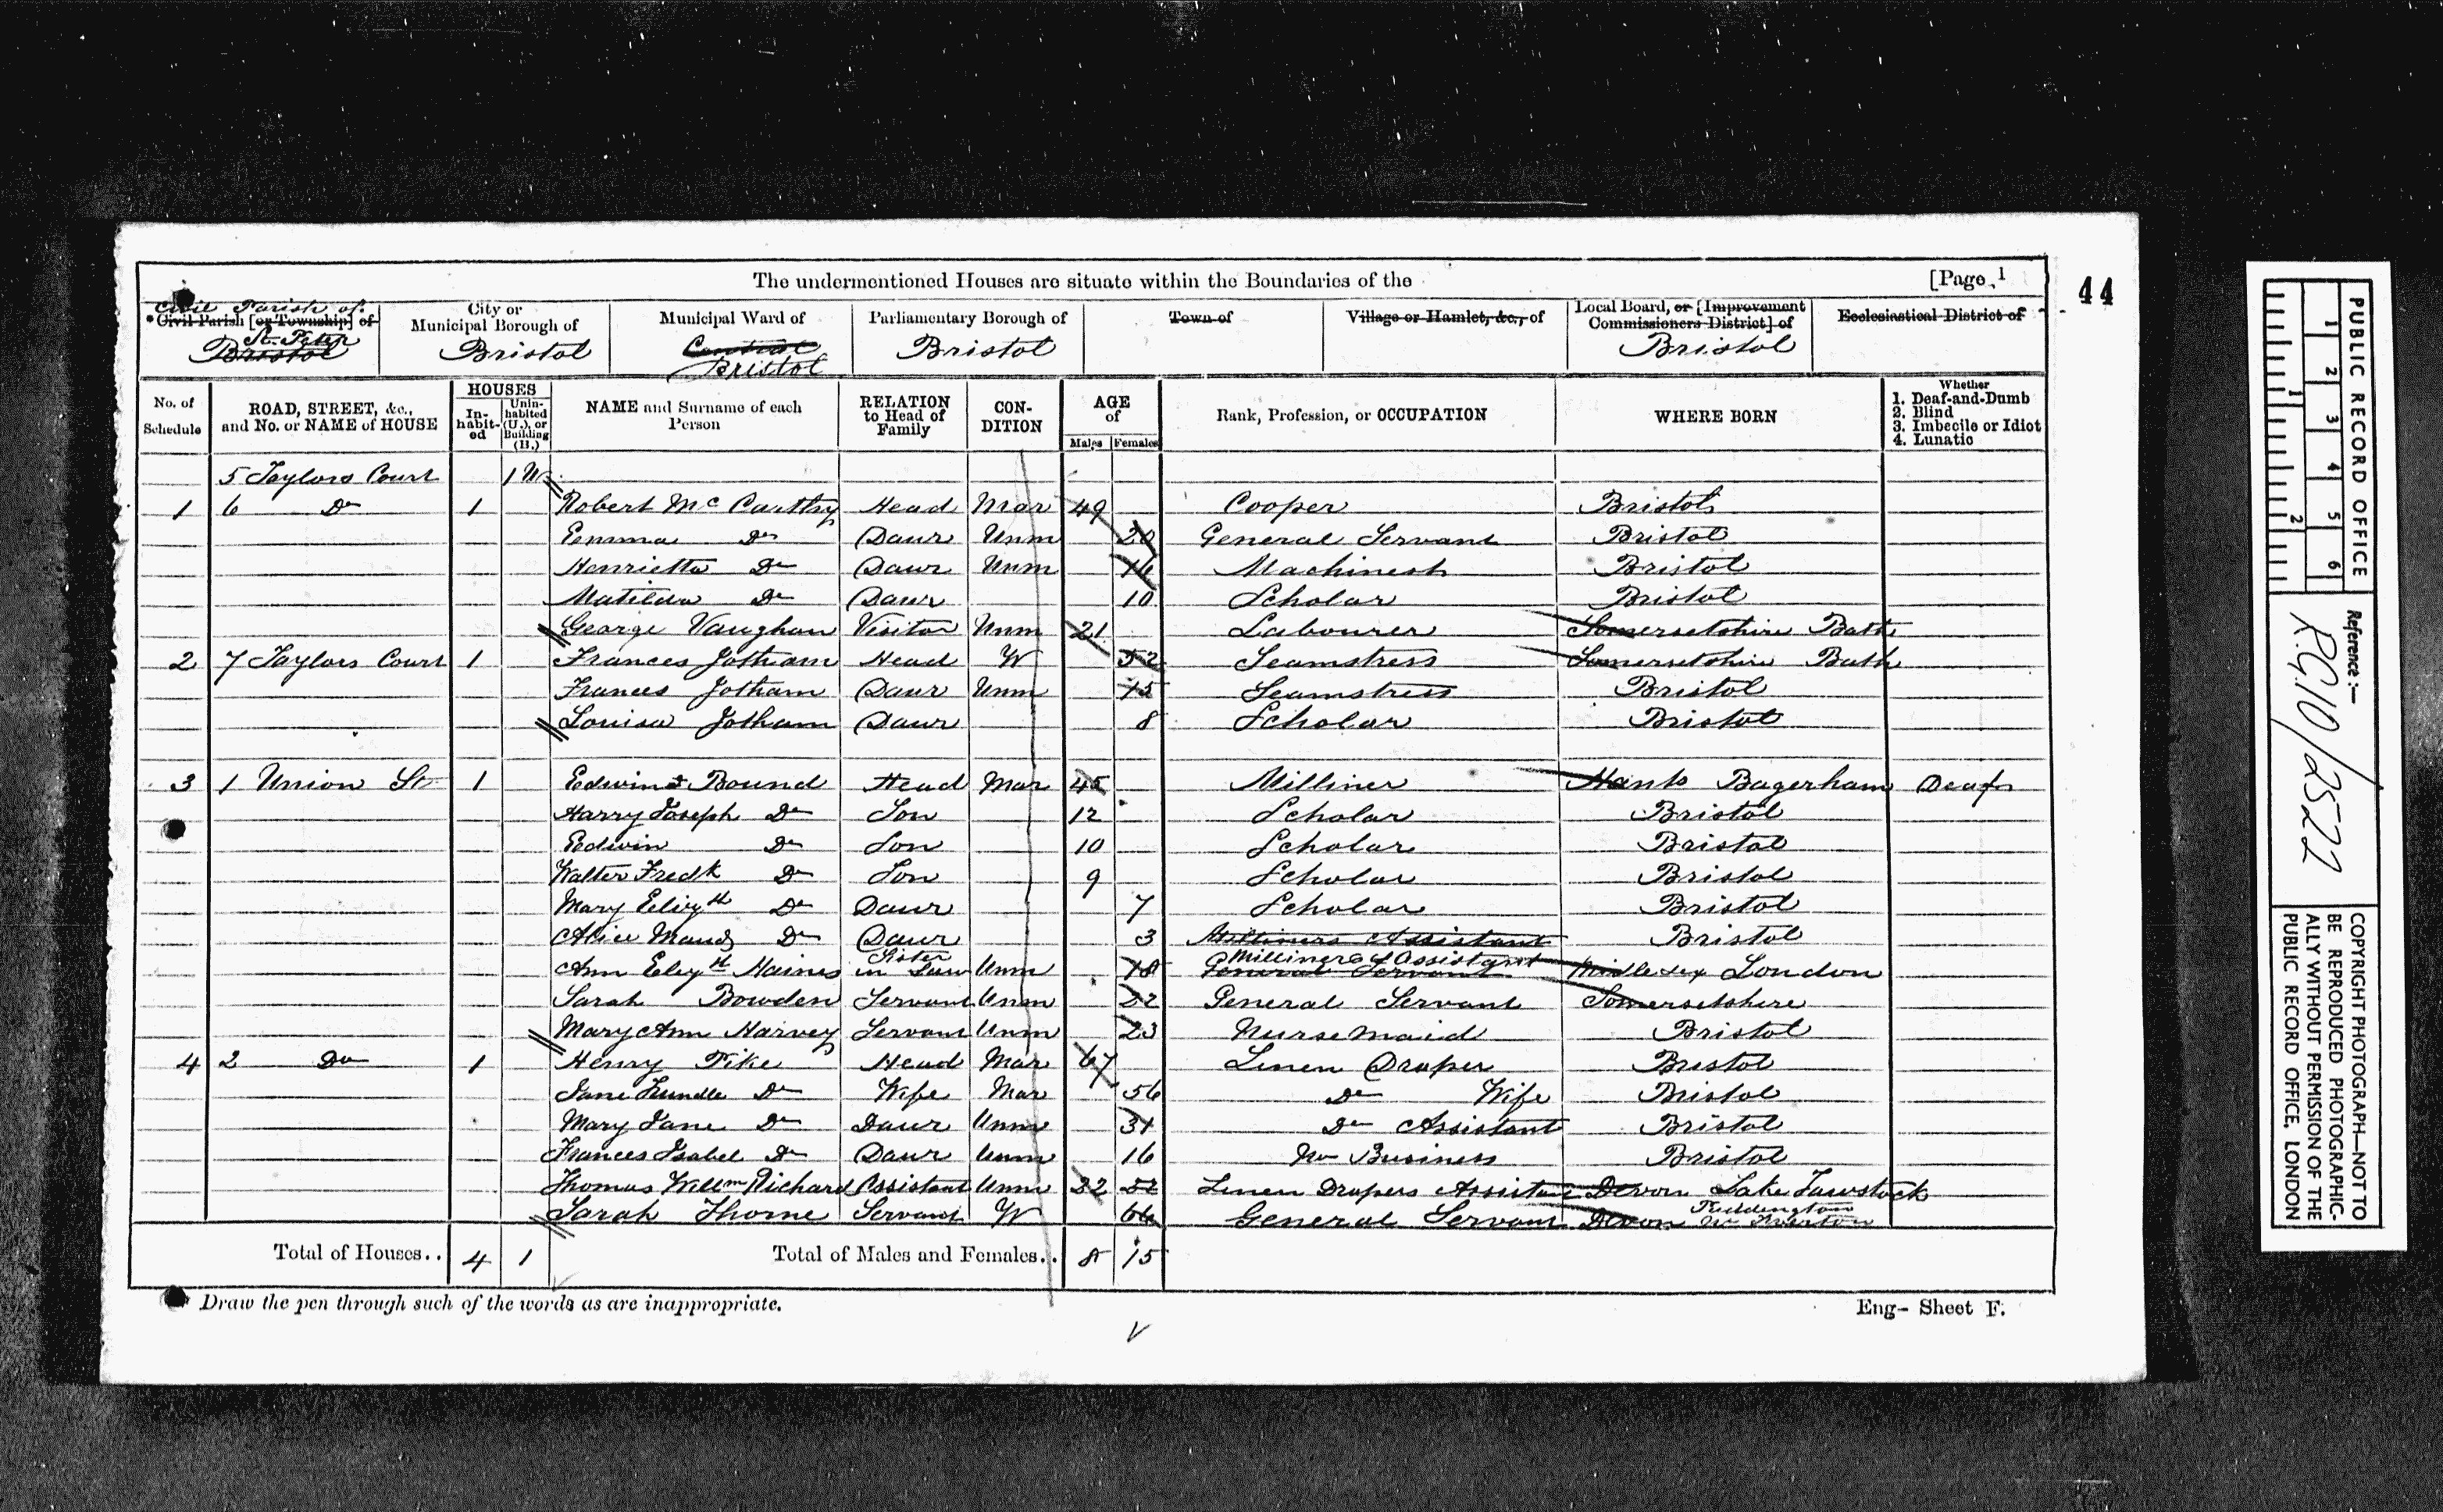 The undermentioned Houses are situate within the Boundaries of the [Page 1
44
Civil Parish of
*Civil Parish [or Township] of
St. Peter
Bristol
City or Municipal Borough of
Bristol
Municipal Ward of
Central
Bristol
Parliamentary Borough of
Bristol
Town of
Village or Hamlet, &c., of
Local Board, or [Improvement Commissioners District] of
Bristol
Ecclesiastical District of
No. of Schedule
ROAD, STREET, &c., and No. or NAME of HOUSE
HOUSES
In-habit-ed
Unin-habited (U.), or Building (B.)
NAME and Surname of each Person
RELATION to Head of Family
CON-DITION
AGE of
Males Females
Rank, Profession, or OCCUPATION
WHERE BORN
Whether
1. Deaf-and-Dumb
2. Blind
3. Imbecile or Idiot
4. Lunatic
5 Taylors Court 1 U
1 6 Do 1 Robert Mc Carthy Head Mar 49 Cooper Bristol
Emma Do Daur Unm 20 General Servant Bristol
Henrietta Do Daur Unm 16 Machinest Bristol
Matilda Do Daur 10 Scholar Bristol
George Vaughan Visitor Unm 21 Labourer Somersetshire Bath
2 7 Taylors Court 1 Frances Jotham Head W 52 Seamstress Somersetshire Bath
Frances Jotham Daur Unm 15 Seamstress Bristol
Louisa Jotham Daur 8 Scholar Bristol
3 1 Union St 1 Edwin Bound Head Mar 45 Milliner Hants Bagerham Deaf
Harry Joseph Do Son 12 Scholar Bristol
Edwin Do Son 10 Scholar Bristol
Walter Fredk Do Son 9 Scholar Bristol
Mary Elizth Do Daur 7 Scholar Bristol
Alice Maud Do Daur 3 Milliners Assistant Bristol
Ann Elizth Haines Sister in Law Unm 18 General Servant Milliners Assistant Middlesex London
Sarah Bowden Servant Unm 22 General Servant Somersetshire
Mary Ann Harvey Servant Unm 23 Nursemaid Bristol
4 2 Do 1 Henry Pike Head Mar 67 Linen Draper Bristol
Jane Do Wife Mar 56 Do Wife Bristol
Mary Jane Do Daur Unm 31 Do Assistant Bristol
Frances Isabel Do Daur Unm 16 No Business Bristol
Thomas Willm Richard Assistant Unm 22 Linen Drapers Assistant Devon Lake Tawstock
Sarah Thorne Servant W 66 General Servant Devon Puddington Nr Tiverton
Total of Houses.. 4 1 Total of Males and Females.. 8 15
Draw the pen through such of the words as are inappropriate.
Eng- Sheet F.
PUBLIC RECORD OFFICE
1 2 3 4 5 6
1 2
Reference:-
R.G.10/2522
COPYRIGHT PHOTOGRAPH—NOT TO
BE REPRODUCED PHOTOGRAPHIC-
ALLY WITHOUT PERMISSION OF THE
PUBLIC RECORD OFFICE, LONDON